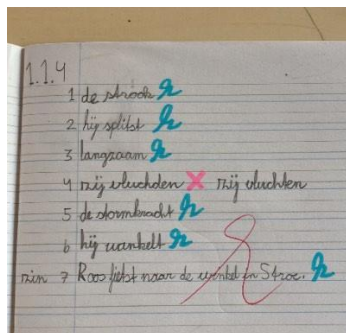 1.1.4
1 de strook
2 hij splitst
3 langzaam
4 zij vluchden zij vluchten
5 de stormkracht
6 hij wankelt
zin 7 Roos fietst naar de winkel in Stroe.